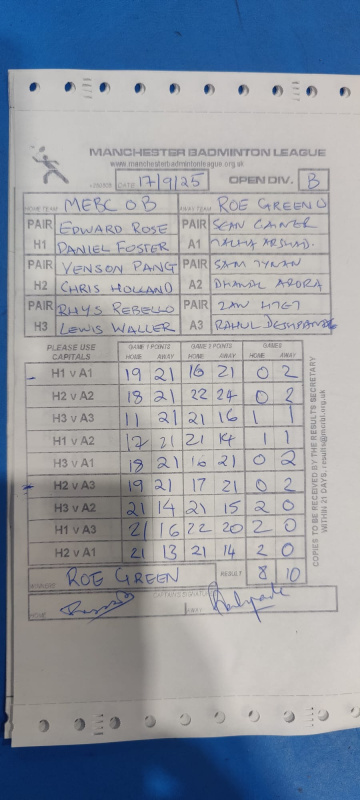 MANCHESTER BADMINTON LEAGUE
www.manchesterbadmintonleague.org.uk
DATE 17/9/25 OPEN DIV. B
HOME TEAM MEBC OB AWAY TEAM ROE GREEN O
PAIR H1 EDWARD ROSE PAIR A1 SEAN GAINER
DANIEL FOSTER TALHA ARSHAD.
PAIR H2 YENSON PANG PAIR A2 SAM TYNAN
CHRIS HOLLAND DHAWAL ARORA
PAIR H3 RHYS REBELLO PAIR A3 ZAW HTET
LEWIS WALLER RAHUL DESHPANDE
PLEASE USE CAPITALS GAME 1 POINTS GAME 2 POINTS GAMES
HOME AWAY HOME AWAY HOME AWAY
H1 v A1 19 21 16 21 0 2
H2 v A2 18 21 22 24 0 2
H3 v A3 11 21 21 16 1 1
H1 v A2 17 21 21 14 1 1
H3 v A1 18 21 16 21 0 2
H2 v A3 19 21 17 21 0 2
H3 v A2 21 14 21 15 2 0
H1 v A3 21 16 22 20 2 0
H2 v A1 21 13 21 14 2 0
WINNERS ROE GREEN RESULT 8 10
CAPTAINS SIGNATURE
HOME AWAY
COPIES TO BE RECEIVED BY THE RESULTS SECRETARY
WITHIN 21 DAYS,